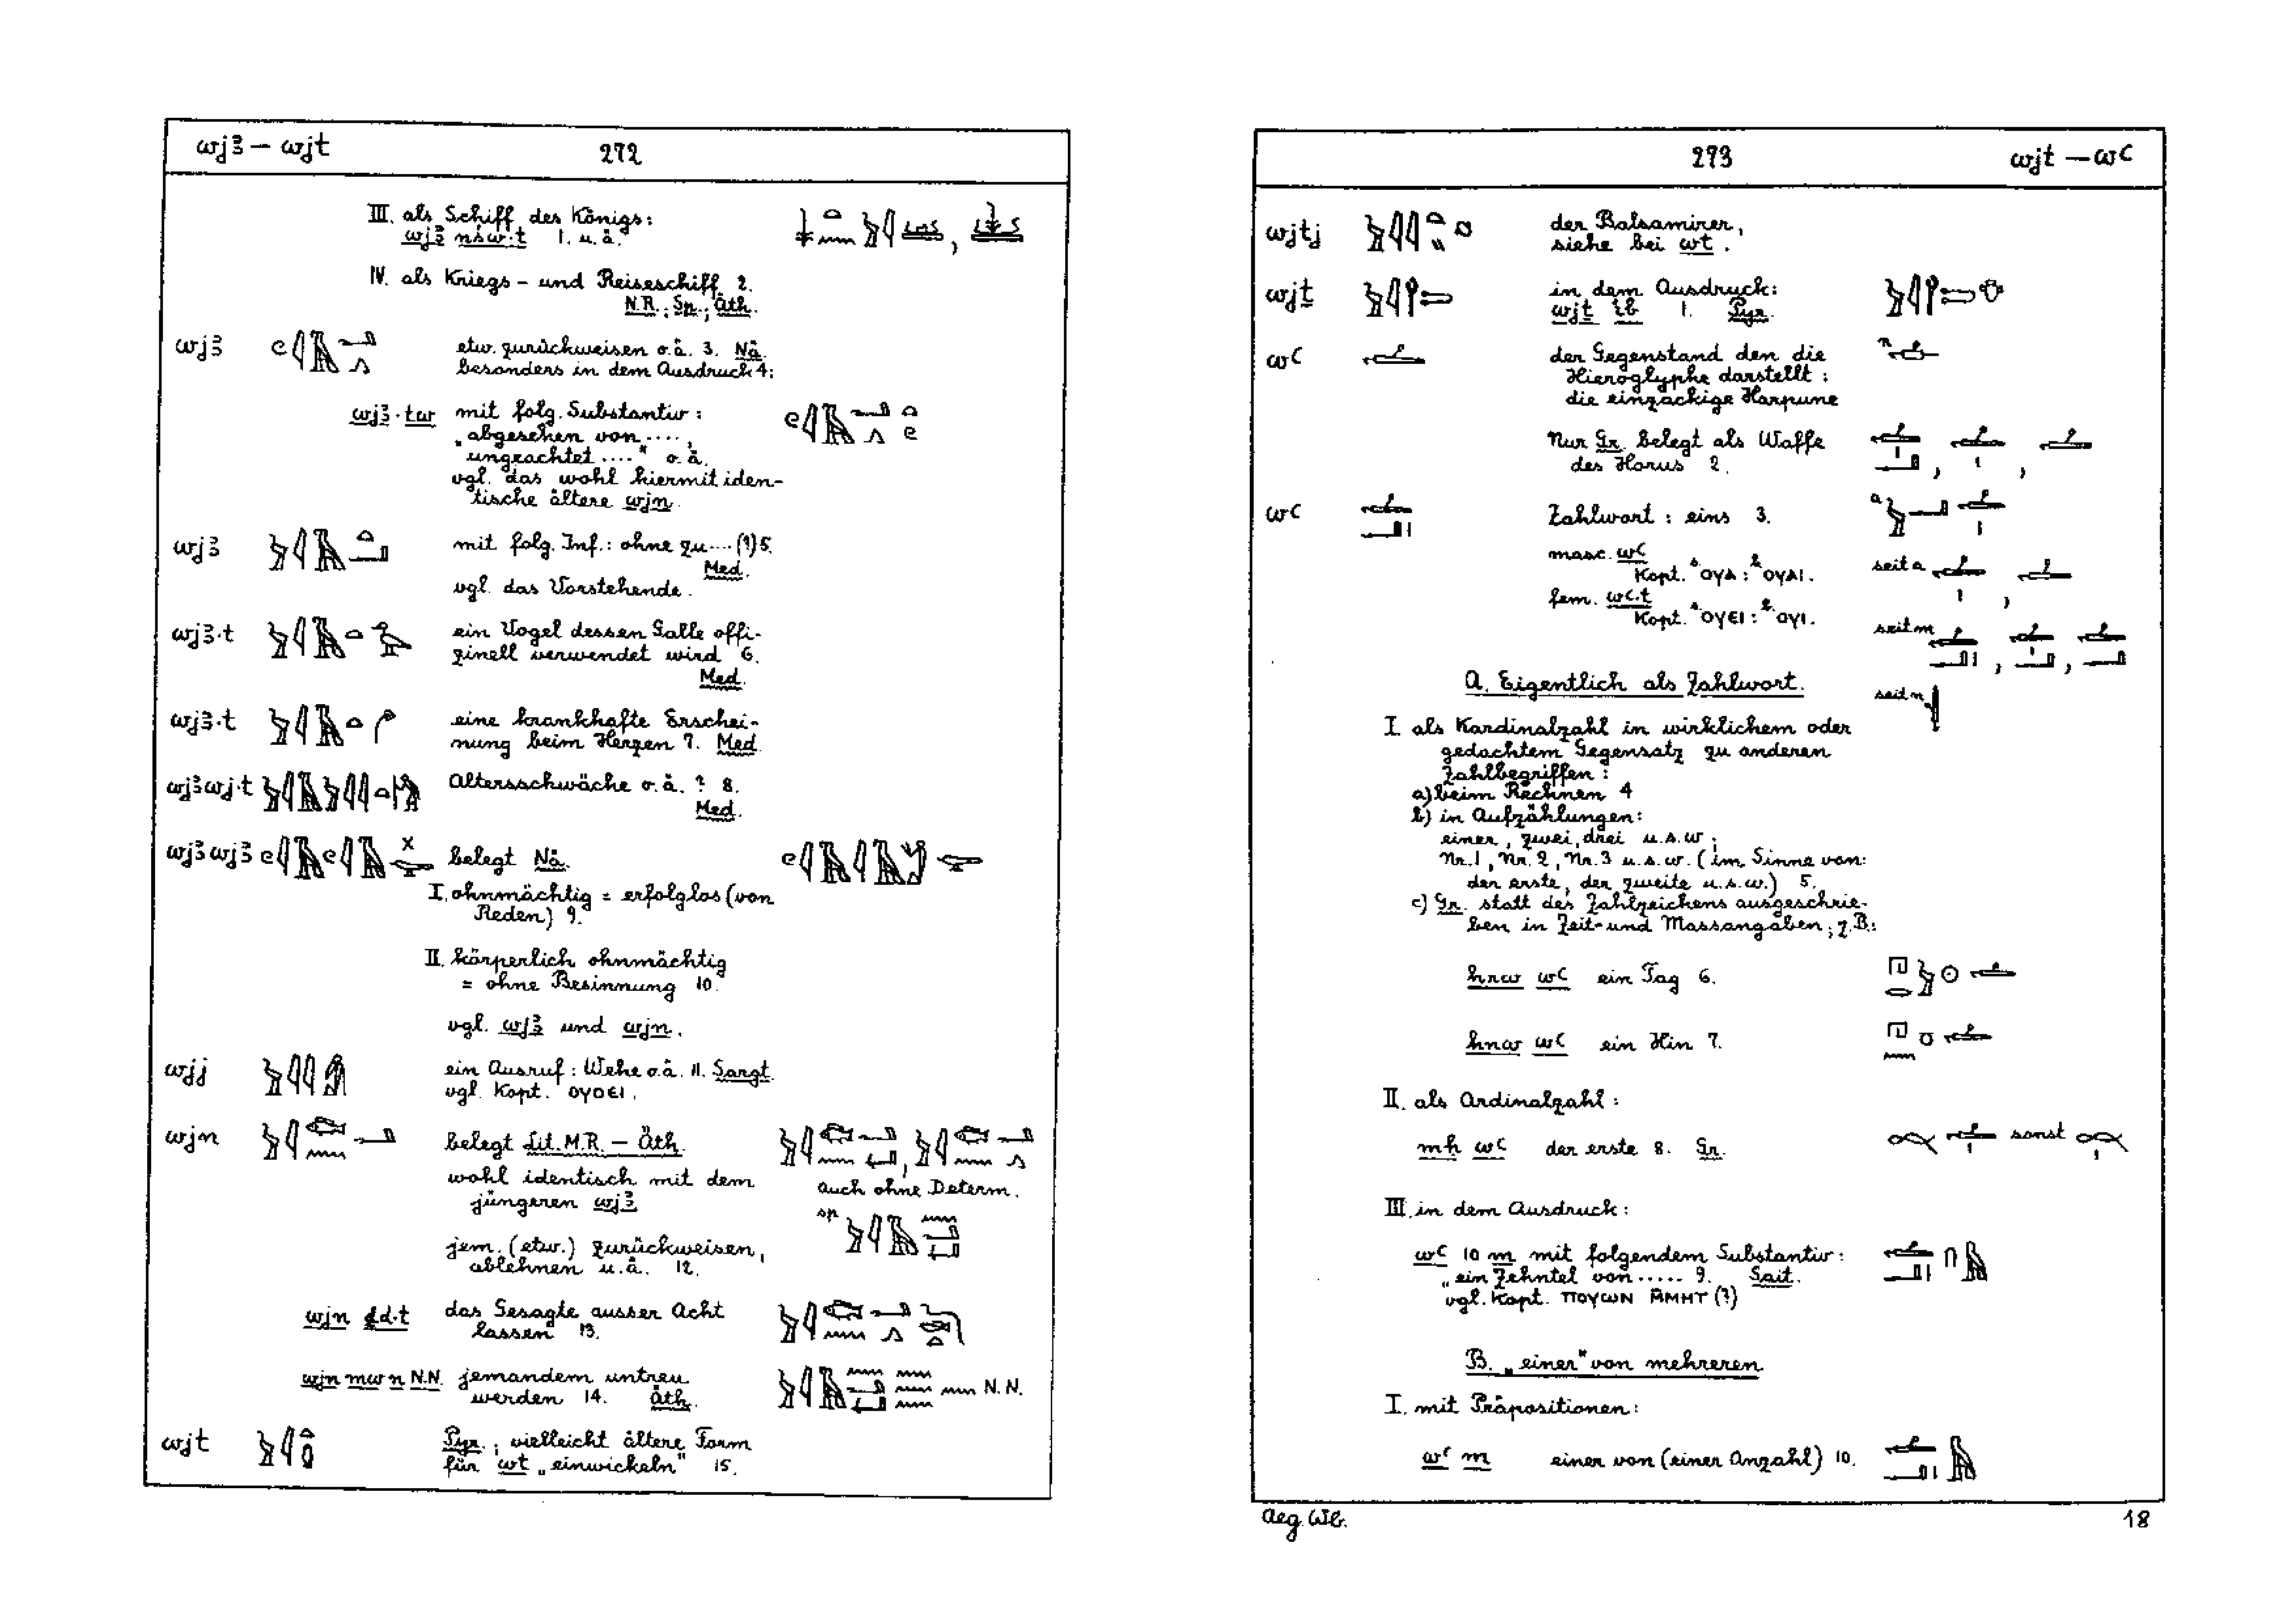 wjȝ — wjt 272
III. als Schiff des Königs:
wjȝ nśw·t 1. u.ä.
IV. als Kriegs- und Reiseschiff 2.
N.R.; Sp.; Äth.
wjȝ etw. zurückweisen o.ä. 3. Nä.
besonders in dem Ausdruck 4:
wjȝ·tw mit folg. Substantiv:
„abgesehen von ....,
ungeachtet ....“ o.ä.
vgl. das wohl hiermit iden-
tische ältere wjn.
wjȝ mit folg. Inf.: ohne zu .... (?) 5.
Med.
vgl. das Vorstehende.
wjȝ·t ein Vogel dessen Galle offi-
zinell verwendet wird 6.
Med.
wjȝ·t eine krankhafte Erschei-
nung beim Herzen 7. Med.
wjȝwj·t Altersschwäche o.ä. ? 8.
Med.
wjȝwjȝ belegt Nä.
I. ohnmächtig = erfolglos (von
Reden) 9.
II. körperlich ohnmächtig
= ohne Besinnung 10.
vgl. wjȝ und wjn.
wjj ein Ausruf: Wehe o.ä. 11. Sargt.
vgl. Kopt. ⲟⲩⲟⲉⲓ.
wjn belegt Lit. M.R. — Äth.
wohl identisch mit dem
jüngeren wjȝ
auch ohne Determ.
sp
jem. (etw.) zurückweisen,
ablehnen u.ä. 12.
wjn ḏd·t das Gesagte ausser Acht
lassen 13.
wjn mw n N.N. jemandem untreu
werden 14. Äth. N.N.
wjt Pyr.; vielleicht ältere Form
für wt „einwickeln“ 15.
273 wjt — wꜥ
wjtj der Balsamirer,
siehe bei wt.
wjṯ in dem Ausdruck:
wjṯ ỉb 1. Pyr.
wꜥ der Gegenstand den die n
Hieroglyphe darstellt:
die einzackige Harpune
Nur Gr. belegt als Waffe
des Horus 2.
wꜥ Zahlwort: eins 3. a
masc. wꜥ
Kopt. ˢⲟⲩⲁ: ᵇⲟⲩⲁⲓ. seit a
fem. wꜥ·t
Kopt. ˢⲟⲩⲉⲓ: ᵇⲟⲩⲓ.
seit m
A. Eigentlich als Zahlwort.
seit n
I. als Kardinalzahl in wirklichem oder
gedachtem Gegensatz zu anderen
Zahlbegriffen:
a) beim Rechnen 4
b) in Aufzählungen:
einer, zwei, drei u.s.w.;
Nr. 1, Nr. 2, Nr. 3 u.s.w. (im Sinne von:
der erste, der zweite u.s.w.) 5.
c) Gr. statt des Zahlzeichens ausgeschrie-
ben in Zeit- und Massangaben; z.B.:
hrw wꜥ ein Tag 6.
hnw wꜥ ein Hin 7.
II. als Ordinalzahl:
mḥ wꜥ der erste 8. Gr. sonst
III. in dem Ausdruck:
wꜥ 10 m mit folgendem Substantiv:
„ein Zehntel von ..... 9. Sait.
vgl. Kopt. ⲡⲟⲩⲱⲛ ⲙ̄ⲙⲏⲧ (?)
B. „einer“ von mehreren
I. mit Präpositionen:
wꜥ m einer von (einer Anzahl) 10.
Aeg. Wb. 18